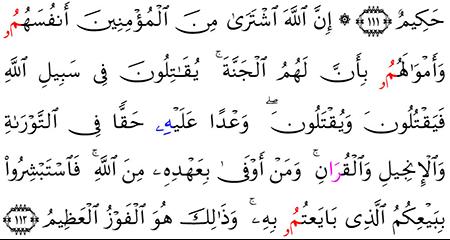 حَكِيمٌ ﴿١١١﴾ ۞ إِنَّ ٱللَّهَ ٱشْتَرَىٰ مِنَ ٱلْمُؤْمِنِينَ أَنفُسَهُمُۥ
وَأَمْوَٰلَهُمُۥ بِأَنَّ لَهُمُ ٱلْجَنَّةَ ۚ يُقَٰتِلُونَ فِى سَبِيلِ ٱللَّهِ
فَيَقْتُلُونَ وَيُقْتَلُونَ ۖ وَعْدًا عَلَيْهِۦ حَقًّا فِى ٱلتَّوْرَىٰةِ
وَٱلْإِنجِيلِ وَٱلْقُرَانِ ۚ وَمَنْ أَوْفَىٰ بِعَهْدِهِۦ مِنَ ٱللَّهِ ۚ فَٱسْتَبْشِرُوا۟
بِبَيْعِكُمُ ٱلَّذِى بَايَعْتُمُۥ بِهِۦ ۚ وَذَٰلِكَ هُوَ ٱلْفَوْزُ ٱلْعَظِيمُ ﴿١١٢﴾